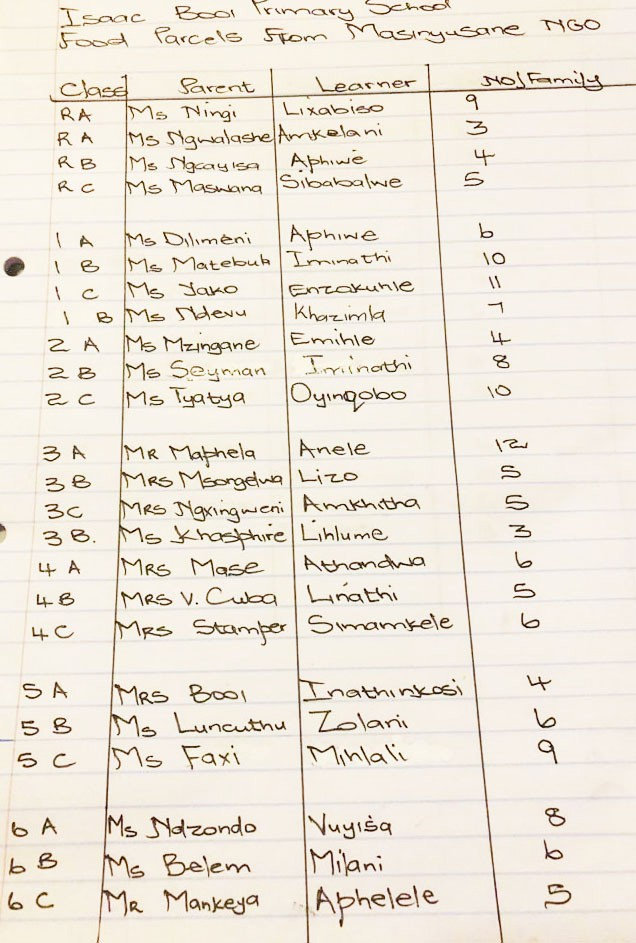 Isaac Booi Primary School
Food Parcels From Masinyusane NGO
Class Parent Learner No/Family
RA Ms Ningi Lixabiso 9
RA Ms Ngwalashe Amkelani 3
RB Ms Ngcayisa Aphiwe 4
RC Ms Maswana Sibabalwe 5
1 A Ms Dilimeni Aphiwe 6
1 B Ms Matebuh Iminathi 10
1 C Ms Yako Enzokuhle 11
1 B Ms Ndevu Khazimla 7
2 A Ms Mzingane Emihle 4
2 B Ms Seyman Iminathi 8
2 C Ms Tyatya Oyinqobo 10
3 A MR Maphela Anele 12
3 B MRS Msongelwa Lizo 5
3C MRS Ngxingweni Amkhitha 5
3 B. Ms Khasphire Lihlume 3
4 A MRS Mase Athandwa 6
4 B MRS V. Cuba Linathi 5
4 C MRS Stamper Simamkele 6
5 A MRS Booi Inathinkosi 4
5 B Ms Luncuthu Zolani 6
5 C Ms Faxi Mihlali 9
6 A Ms Ndzondo Vuyisa 8
6 B Ms Belem Milani 6
6 C MR Mankeya Aphelele 5